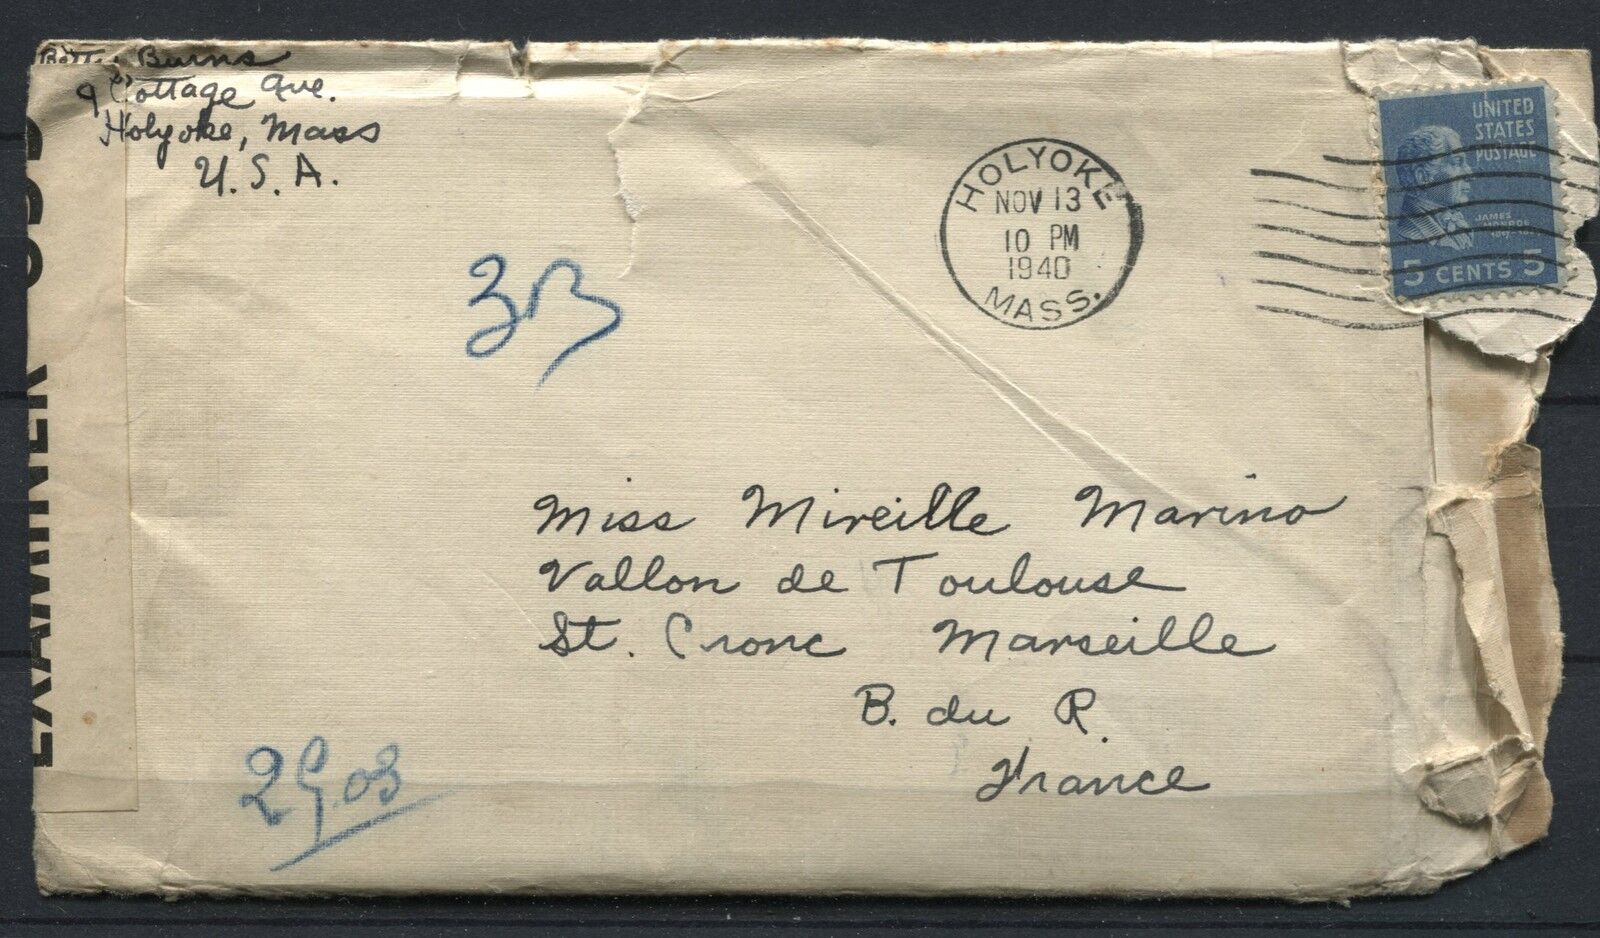 Burns
9 Cottage Ave.
Holyoke, Mass
U.S.A.
HOLYOKE
NOV 13
10 PM
1940
MASS.
UNITED
STATES
POSTAGE
JAMES
MONROE
5 CENTS 5
EXAMINER
Miss Mireille Marino
Vallon de Toulouse
St. Cronc Marseille
B. du R.
France